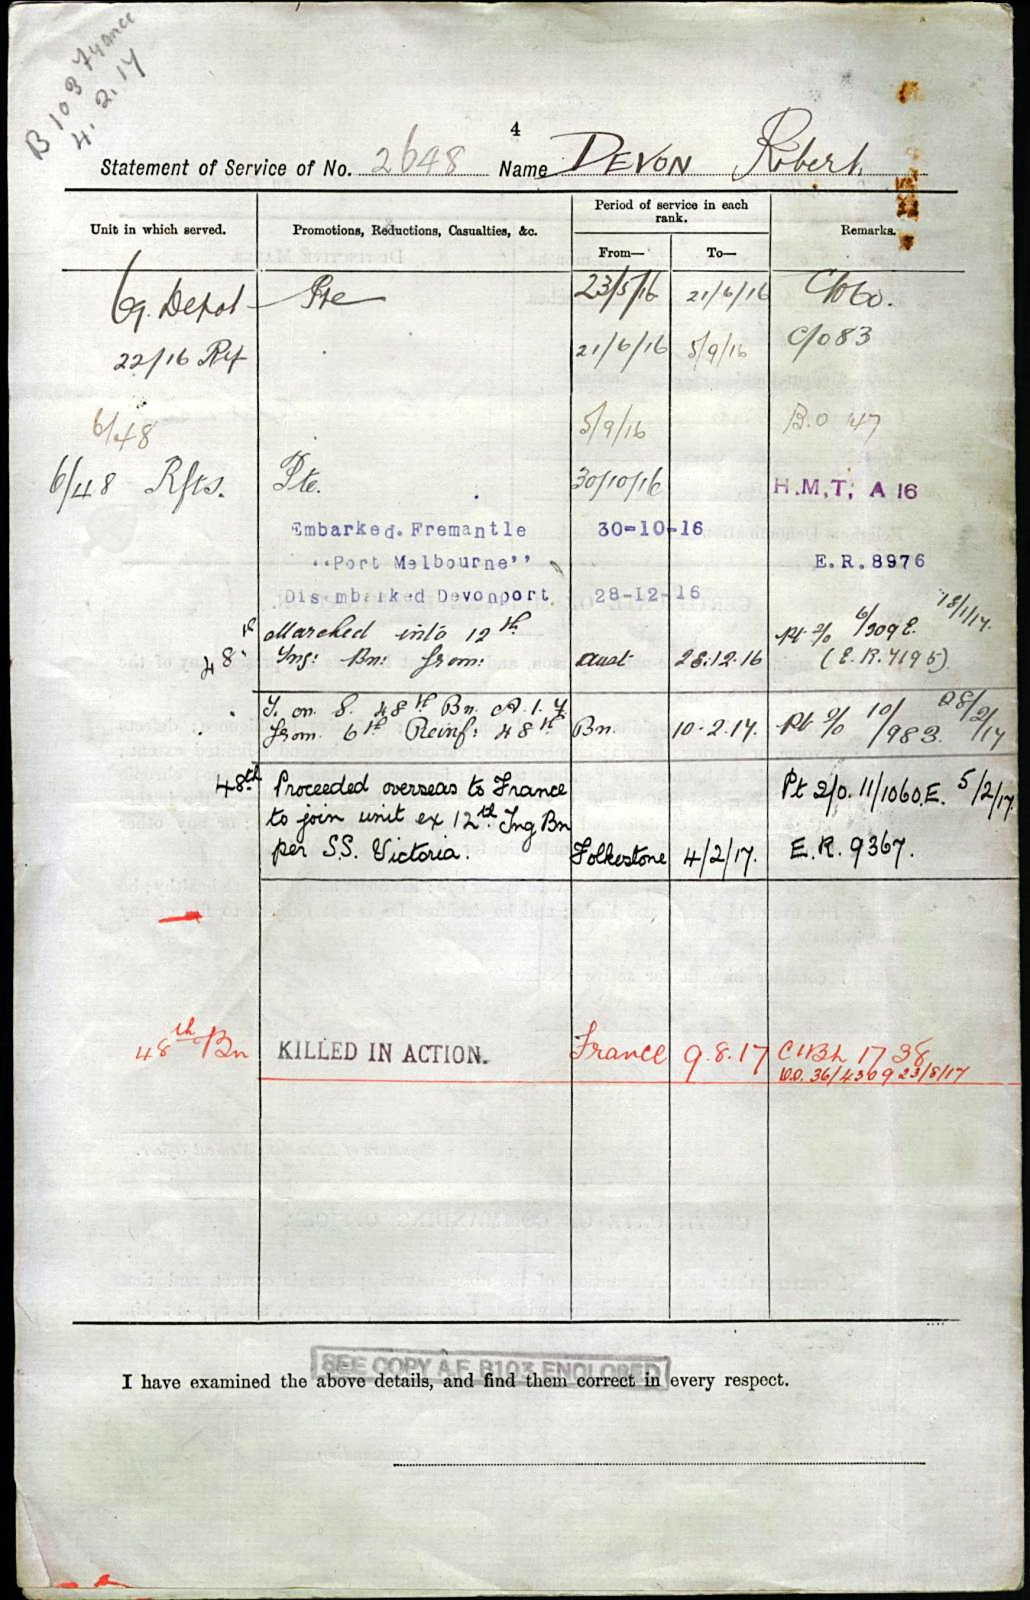 B103 France
4.2.17
4
Statement of Service of No. 2648 Name DEVON Robert.
Unit in which served. Promotions, Reductions, Casualties, &c. Period of service in each rank. Remarks.
From— To—
Depot Pte 23/5/16 21/6/16 C/o 60.
22/16 Rft 21/6/16 5/9/16 C/o 83
6/48 5/9/16 B.O 47
6/48 Rfts. Pte. 30/10/16 H.M.T, A 16
Embarked. Fremantle 30-10-16
"Port Melbourne" E.R.8976
Disembarked Devonport 28-12-16
Marched into 12th Pt 2/o 6/309 E. 18/1/17.
48th Tng: Bn: from: Aust 28.12.16 (E.R.7195)
T. on S. 48th Bn. A.I.F. 28/2/17
from 6th Reinf: 48th Bn. 10.2.17. Pt 2/o 10/983
48th Proceeded overseas to France Pt 2/0. 11/1060.E. 5/2/17.
to join unit ex 12th Tng Bn
per S.S. Victoria. Folkestone 4/2/17. E.R. 9367.
48th Bn KILLED IN ACTION. France 9.8.17 1738
W.O. 36/4309 23/8/17
SEE COPY A.F. B103 ENCLOSED
I have examined the above details, and find them correct in every respect.